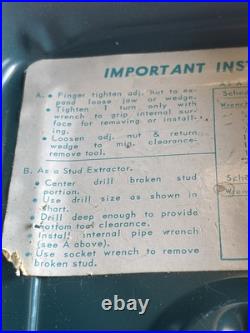 IMPORTANT INS
A. • Finger tighten adj. nut to ex-
pand loose jaw or wedge.
• Tighten 1 turn only with
wrench to grip internal sur-
face for removing or install-
ing.
• Loosen adj. nut & return
wedge to min. clearance-
remove tool.
B. As a Stud Extractor.
• Center drill broken stud
portion.
• Use drill size as shown in
chart.
Drill deep enough to provide
bottom tool clearance.
• Install internal pipe wrench
(see A above).
• Use socket wrench to remove
broken stud.
Sche
Wrenc
Sch
Wrenc